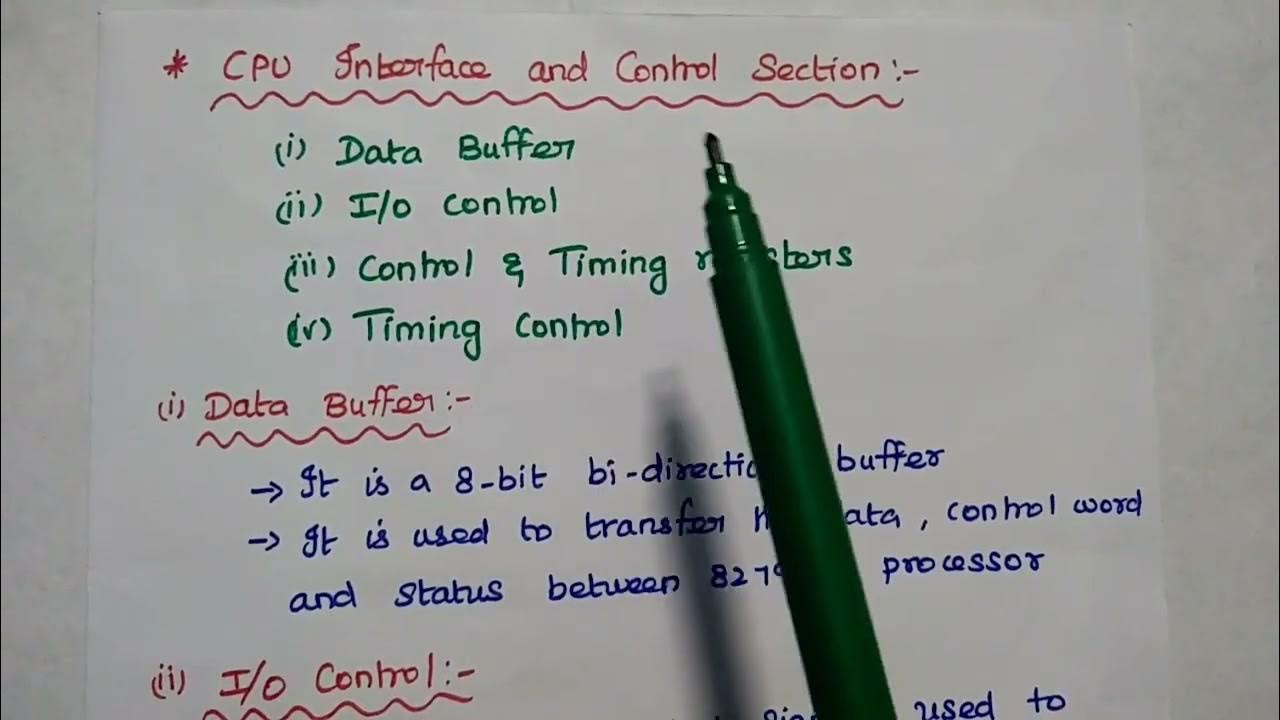 * CPU Interface and Control Section:-
(i) Data Buffer
(ii) I/O control
(iii) Control & Timing
(v) Timing control
(i) Data Buffer:-
→ It is a 8-bit buffer
→ It is used to transfer , control word
and status between processor
(ii) I/O Control:-
used to